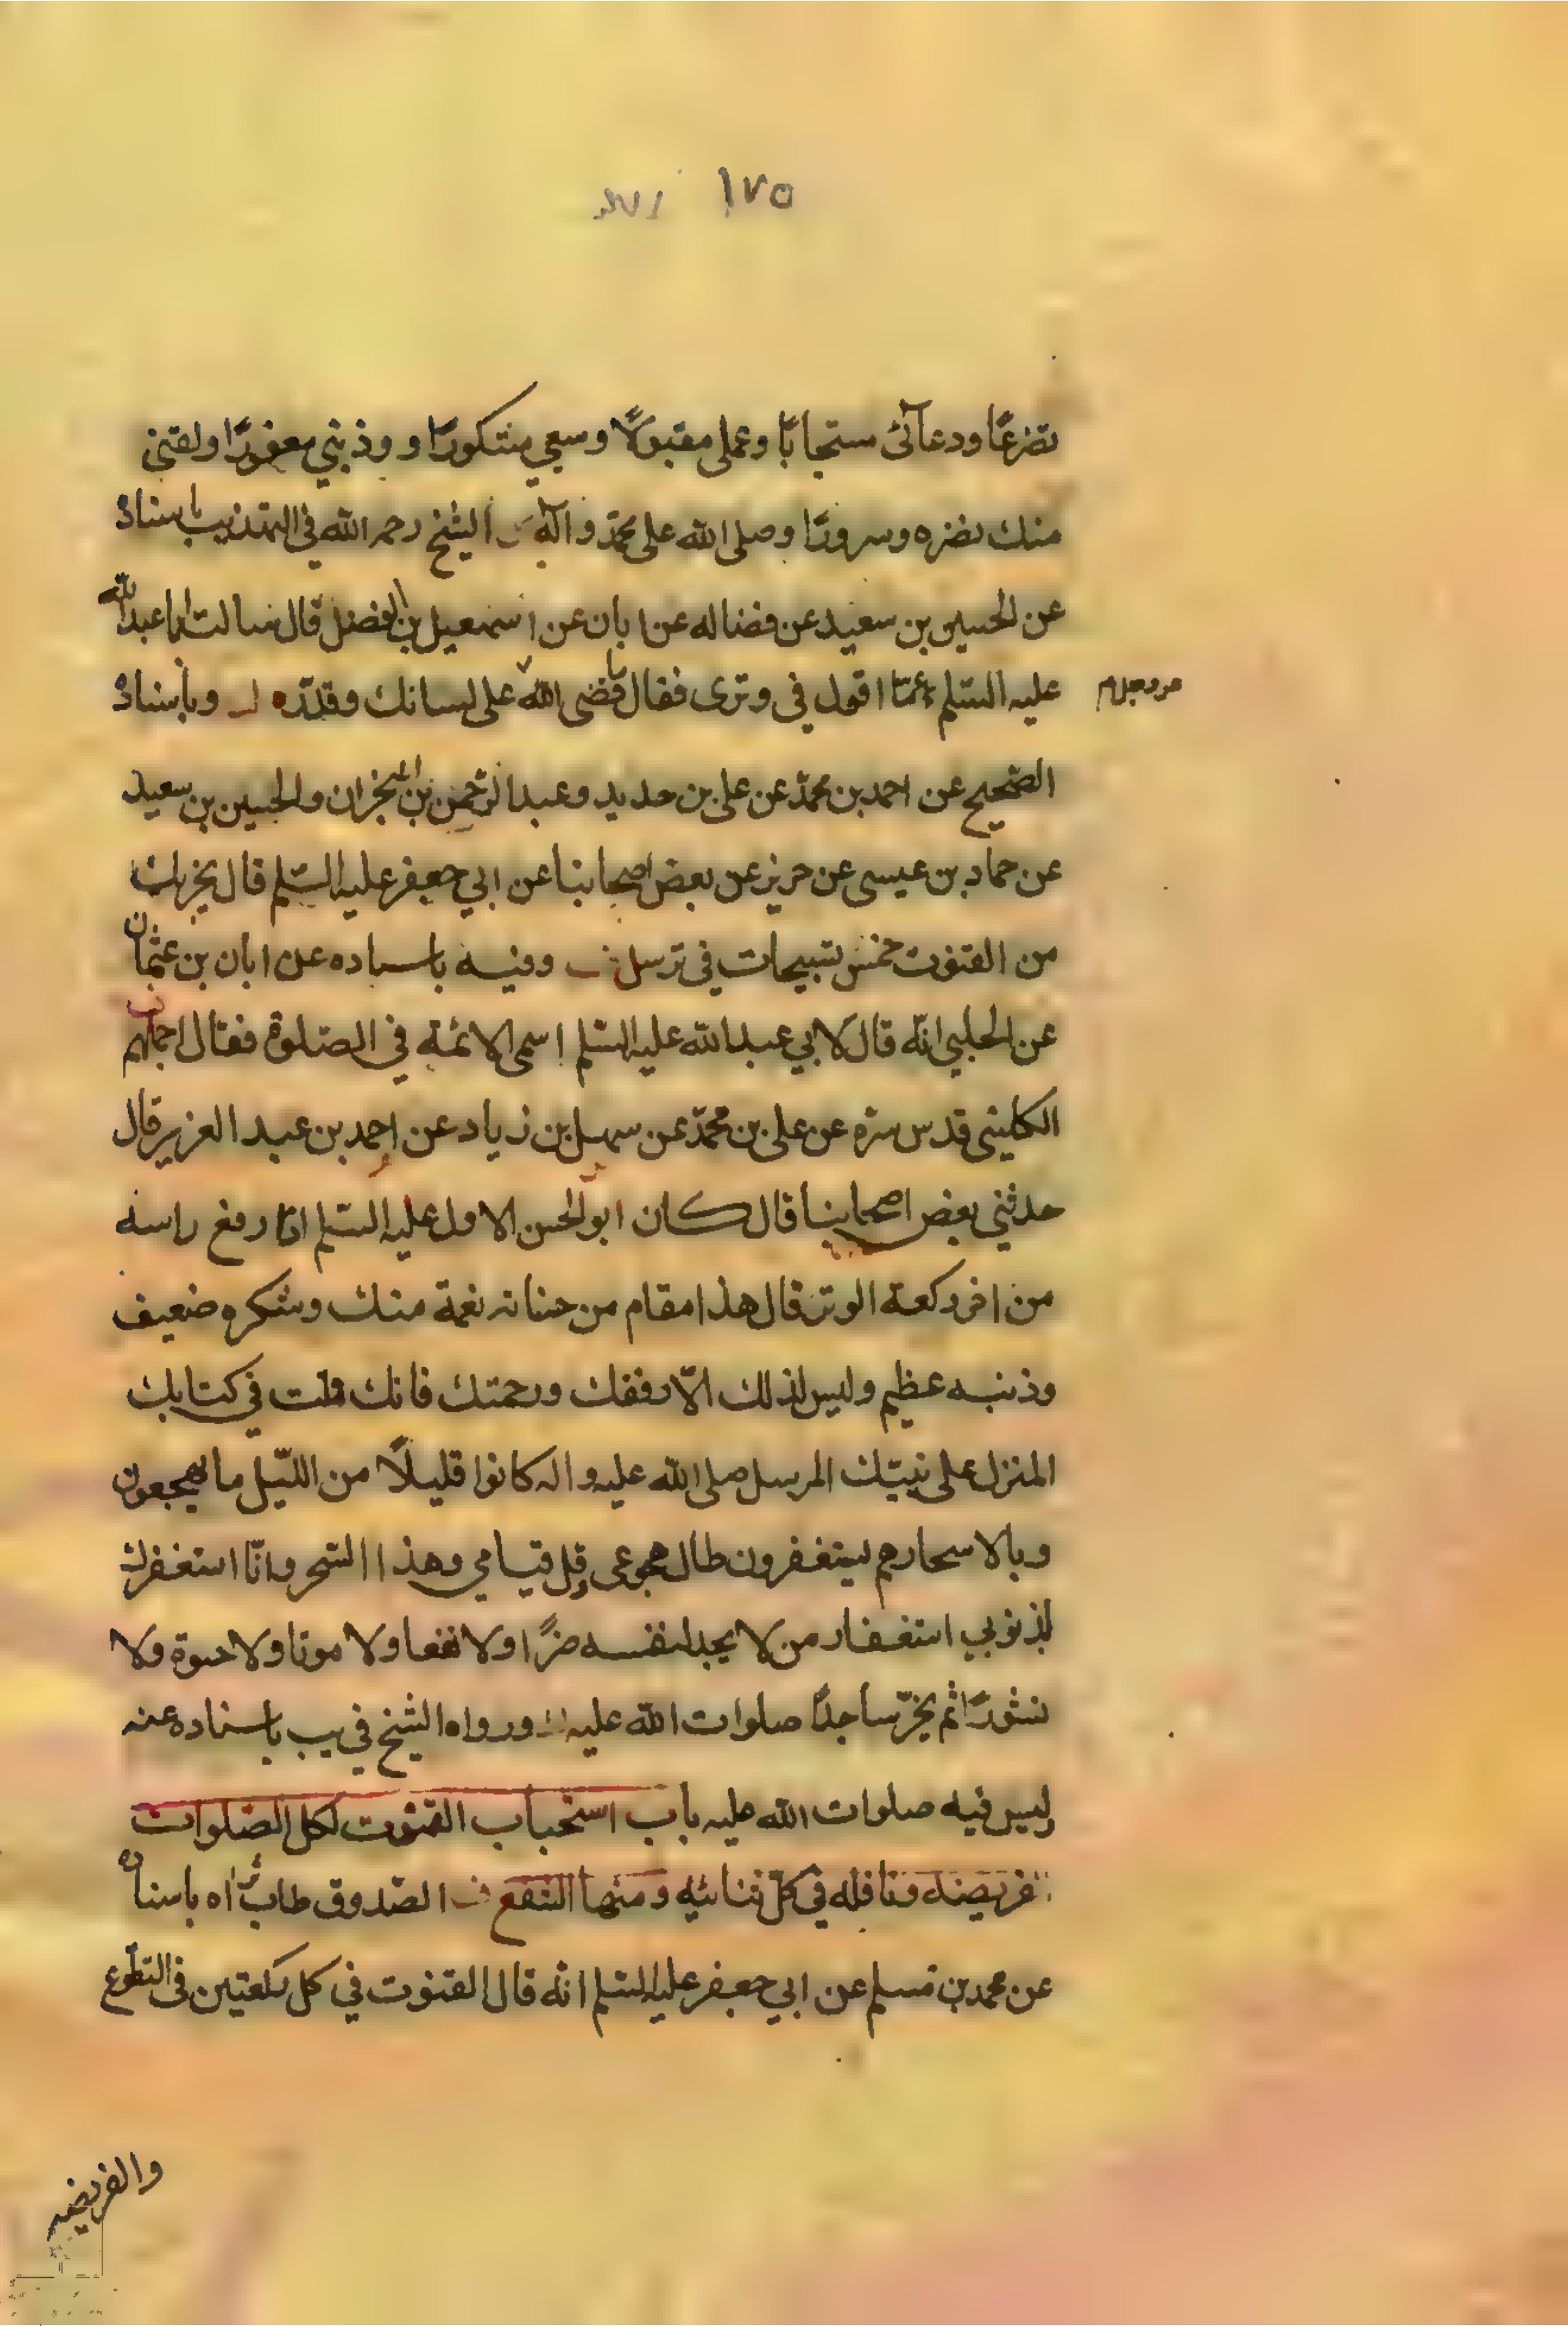 ١٧٥
تضرعًا ودعآئى مستجابًا وعملى مقبولًا وسعيي مشكورًا و وذنبي مغفورًا ولقنى
منك نضره وسرورًا وصلى الله على محمّد وآله الشيخ رحمه الله في التهذيب باسناده
عن الحسين بن سعيد عن فضاله عن ابان عن اسمعيل بن الفضل قال سالت ابا عبد الله
عليه السّلم عمّا اقول فى وترى فقال ما قضى الله على لسانك وقدّره وباسناده
الصّحيح عن احمد بن محمّد عن على بن حديد وعبد الرّحمن بن ابى نجران والحسين بن سعيد
عن حماد بن عيسى عن حريز عن بعض اصحابنا عن ابي جعفر عليه السّلم قال يجزيك
من القنوت خمس تسبيحات في ترسل وفيه باسناده عن ابان بن عثمان
عن الحلبي انّه قال لابي عبد الله عليه السّلم اسمى الائمة في الصّلوة فقال اجملهم
الكلينى قدس سرّه عن على بن محمّد عن سهل بن زياد عن احمد بن عبد العزيز قال
حدثني بعض اصحابنا قال كان ابو الحسن الاول عليه السّلم اذا رفع راسه
من اخر ركعة الوتر قال هذا مقام من حسناته نعمة منك وشكره ضعيف
وذنبه عظيم وليس لذلك الّا رفقك ورحمتك فانك قلت في كتابك
المنزل على نبيّك المرسل صلى الله عليه واله كانوا قليلًا من اللّيل ما يهجعون
وبالاسحار هم يستغفرون طال هجوعى وقل قيامي وهذا السّحر وانّا استغفرك
لذنوبي استغفار من لا يجد لنفسه ضرًا ولا نفعا ولا موتا ولا حيوة ولا
نشورًا ثم يخرّ ساجدًا صلوات الله عليه ورواه الشيخ في يب باسناده عنه
وليس فيه صلوات الله عليه باب استحباب القنوت لكل الصّلوات
فريضة ونافله في كلّ ثنائيه ومنها الشفع الصّدوق طاب ثراه باسناده
عن محمد بن مسلم عن ابي جعفر عليه السّلم انّه قال القنوت في كل ركعتين فى التطوّع
والفريضه